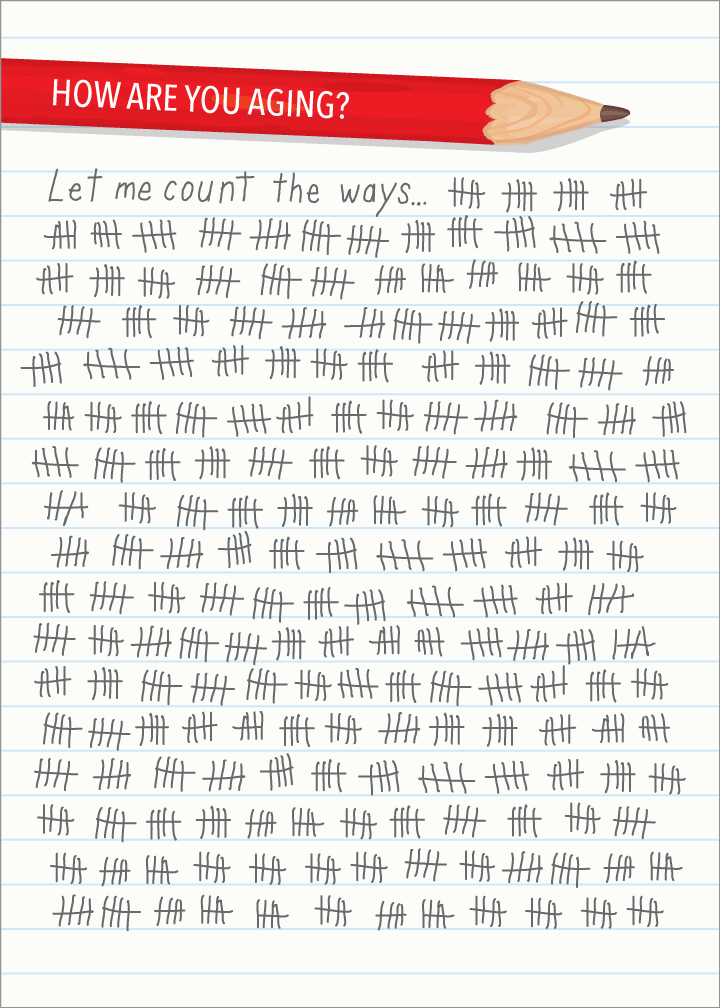 HOW ARE YOU AGING?
Let me count the ways...